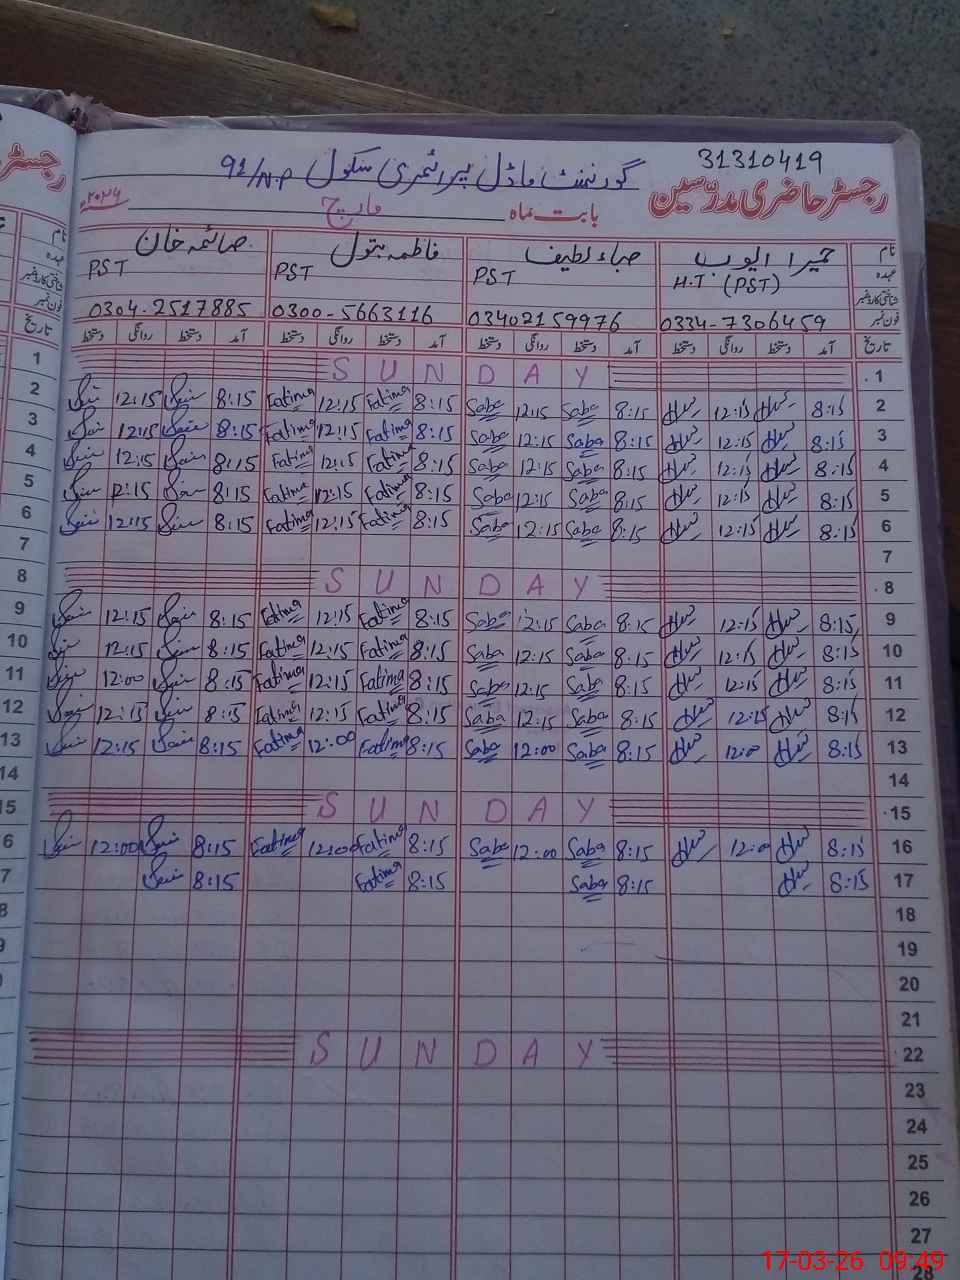 31310419
گورنمنٹ ماڈل پرائمری سکول 91/N.P
رجسٹر حاضری مدرسین
بابت ماہ مارچ ۲۰۲۶
نام حمیرا ایوب صباء لطیف فاطمہ بتول صائمہ خان
عہدہ H.T (PST) PST PST PST
شناختی کارڈ نمبر
فون نمبر 0334-7306459 03402159976 0300-5663116 0304-2517885
تاریخ آمد دستخط روانگی دستخط آمد دستخط روانگی دستخط آمد دستخط روانگی دستخط آمد دستخط روانگی دستخط تاریخ
1 SUNDAY 1
2 12:15 8:15 Fatima 12:15 Fatima 8:15 Saba 12:15 Saba 8:15 12:15 8:15 2
3 12:15 8:15 Fatima 12:15 Fatima 8:15 Saba 12:15 Saba 8:15 12:15 8:15 3
4 12:15 8:15 Fatima 12:15 Fatima 8:15 Saba 12:15 Saba 8:15 12:15 8:15 4
5 12:15 8:15 Fatima 12:15 Fatima 8:15 Saba 12:15 Saba 8:15 12:15 8:15 5
6 12:15 8:15 Fatima 12:15 Fatima 8:15 Saba 12:15 Saba 8:15 12:15 8:15 6
7 7
8 SUNDAY 8
9 12:15 8:15 Fatima 12:15 Fatima 8:15 Saba 12:15 Saba 8:15 12:15 8:15 9
10 12:15 8:15 Fatima 12:15 Fatima 8:15 Saba 12:15 Saba 8:15 12:15 8:15 10
11 12:00 8:15 Fatima 12:15 Fatima 8:15 Saba 12:15 Saba 8:15 12:15 8:15 11
12 12:15 8:15 Fatima 12:15 Fatima 8:15 Saba 12:15 Saba 8:15 12:15 8:15 12
13 12:15 8:15 Fatima 12:00 Fatima 8:15 Saba 12:00 Saba 8:15 12:00 8:15 13
14 14
15 SUNDAY 15
6 12:00 8:15 Fatima 12:00 Fatima 8:15 Saba 12:00 Saba 8:15 12:00 8:15 16
7 8:15 Fatima 8:15 Saba 8:15 8:15 17
8 18
9 19
20
21
SUNDAY 22
23
24
25
26
27
28
17-03-26 09:49